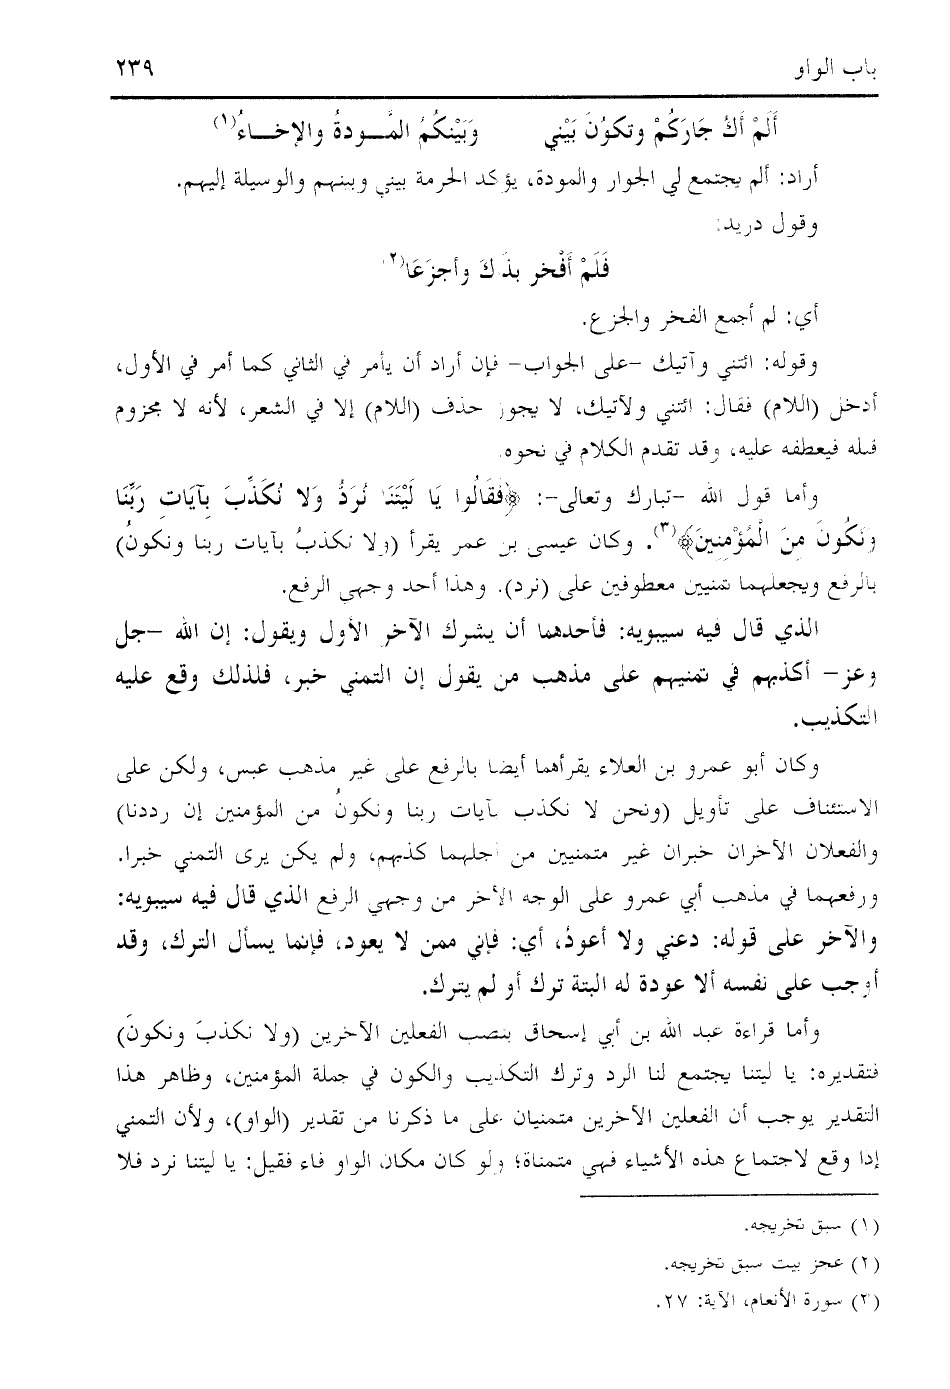 باب الواو ٢٣٩
أَلَمْ أَكُ جَارَكُمْ وتكوُنَ بَيْني وَبَيْنكُمُ المَّودةُ والإخاءُ(١)
أراد: ألم يجتمع لي الجوار والمودة، يؤكد الحرمة بيني وبينهم والوسيلة إليهم.
وقول دريد:
فَلَمْ أَفْخر بذَكَ وأجزَعَا(٢)
أي: لم أجمع الفخر والجزع.
وقوله: ائتني وآتيك –على الجواب– فإن أراد أن يأمر في الثاني كما أمر في الأول،
أدخل (اللام) فقال: ائتني ولآتيك، لا يجوز حذف (اللام) إلا في الشعر، لأنه لا مجزوم
قبله فيعطفه عليه، وقد تقدم الكلام في نحوه.
وأما قول الله –تبارك وتعالى–: ﴿فَقَالُوا يَا لَيْتَنَا نُرَدُّ وَلا نُكَذِّبَ بِآيَاتِ رَبِّنَا
وَنَكُونَ مِنَ الْمُؤْمِنِينَ﴾(٣). وكان عيسى بن عمر يقرأ (ولا نكذبُ بآيات ربنا ونكونُ)
بالرفع ويجعلهما تمنيين معطوفين على (نرد). وهذا أحد وجهي الرفع.
الذي قال فيه سيبويه: فأحدهما أن يشرك الآخر الأول ويقول: إن الله –جل
وعز– أكذبهم في تمنيهم على مذهب من يقول إن التمني خبر، فلذلك وقع عليه
التكذيب.
وكان أبو عمرو بن العلاء يقرأهما أيضا بالرفع على غير مذهب عبس، ولكن على
الاستئناف على تأويل (ونحن لا نكذب بآيات ربنا ونكونُ من المؤمنين إن رددنا)
والفعلان الآخران خبران غير متمنيين من أجلهما كذبهم، ولم يكن يرى التمني خبرا.
ورفعهما في مذهب أبي عمرو على الوجه الآخر من وجهي الرفع الذي قال فيه سيبويه:
والآخر على قوله: دعني ولا أعودُ، أي: فإني ممن لا يعود، فإنما يسأل الترك، وقد
أوجب على نفسه ألا عودة له البتة ترك أو لم يترك.
وأما قراءة عبد الله بن أبي إسحاق بنصب الفعلين الآخرين (ولا نكذبَ ونكونَ)
فتقديره: يا ليتنا يجتمع لنا الرد وترك التكذيب والكون في جملة المؤمنين، وظاهر هذا
التقدير يوجب أن الفعلين الآخرين متمنيان على ما ذكرنا من تقدير (الواو)، ولأن التمني
إذا وقع لاجتماع هذه الأشياء فهي متمناة؛ ولو كان مكان الواو فاء فقيل: يا ليتنا نرد فلا
(١) سبق تخريجه.
(٢) عجز بيت سبق تخريجه.
(٣) سورة الأنعام، الآية: ٢٧.